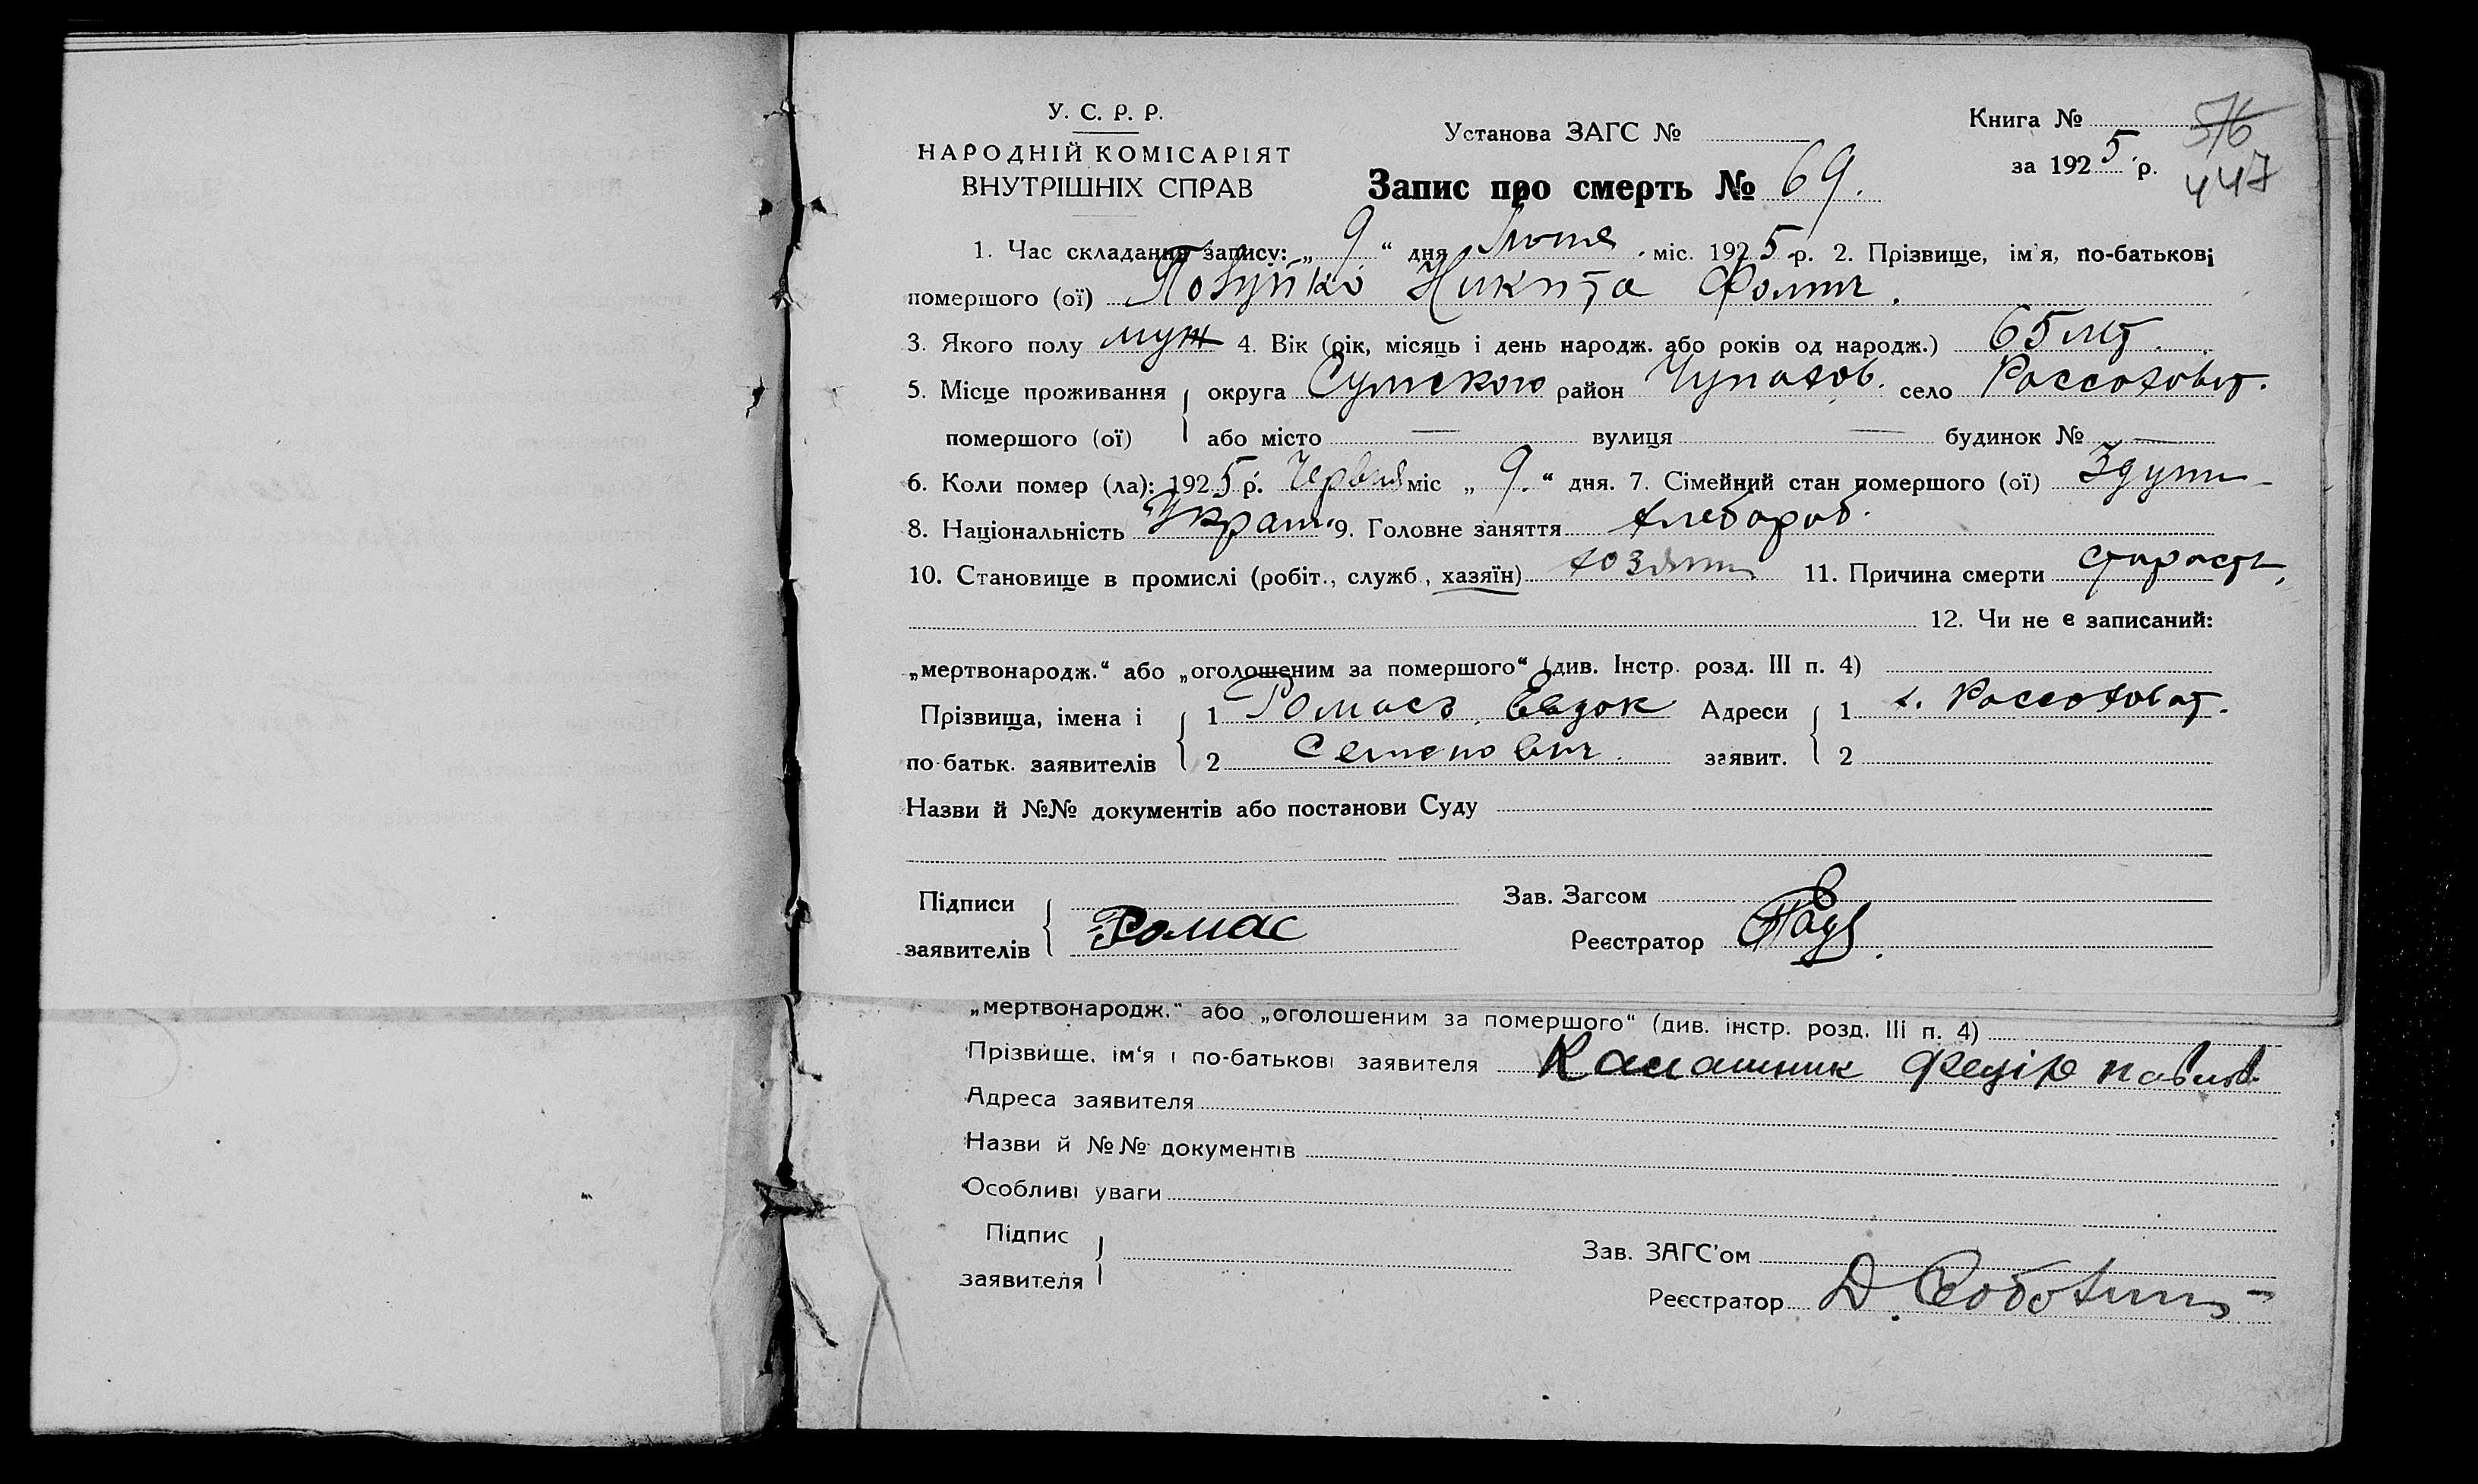 У. С. Р. Р.
НАРОДНІЙ КОМІСАРІЯТ
ВНУТРІШНІХ СПРАВ
Установа ЗАГС №
Запис про смерть № 69.
Книга №
за 1925 р.
576
447
1. Час складання запису: „9“ дня Июня міс. 1925 р. 2. Прізвище, ім'я, по-батькові
помершого (ої) Никита Фомич.
3. Якого полу муж 4. Вік (рік, місяць і день народж. або років од народж.) 65 лет.
5. Місце проживання округа Сумского район Чупахов. село Рассоховат.
помершого (ої) або місто — вулиця — будинок № —
6. Коли помер (ла): 1925 р. Червня міс „9.“ дня. 7. Сімейний стан помершого (ої)
8. Національність Украин. 9. Головне заняття хлебороб.
10. Становище в промислі (робіт., служб., хазяїн) хозяин 11. Причина смерти старость,
12. Чи не є записаний:
„мертвонародж.“ або „оголошеним за помершого“ (див. Інстр. розд. III п. 4)
Прізвища, імена і 1 Ромась Евдок Адреси 1 х. Рассоховат.
по батьк. заявителів 2 Семенович. заявит. 2
Назви й №№ документів або постанови Суду
Підписи Зав. Загсом
заявителів Ромас Реєстратор
„мертвонародж.“ або „оголошеним за помершого“ (див. інстр. розд. III п. 4)
Прізвище, ім'я і по-батькові заявителя Калашник Федір Павлов.
Адреса заявителя
Назви й №№ документів
Особливі уваги
Підпис Зав. ЗАГС'ом
заявителя Реєстратор Д.